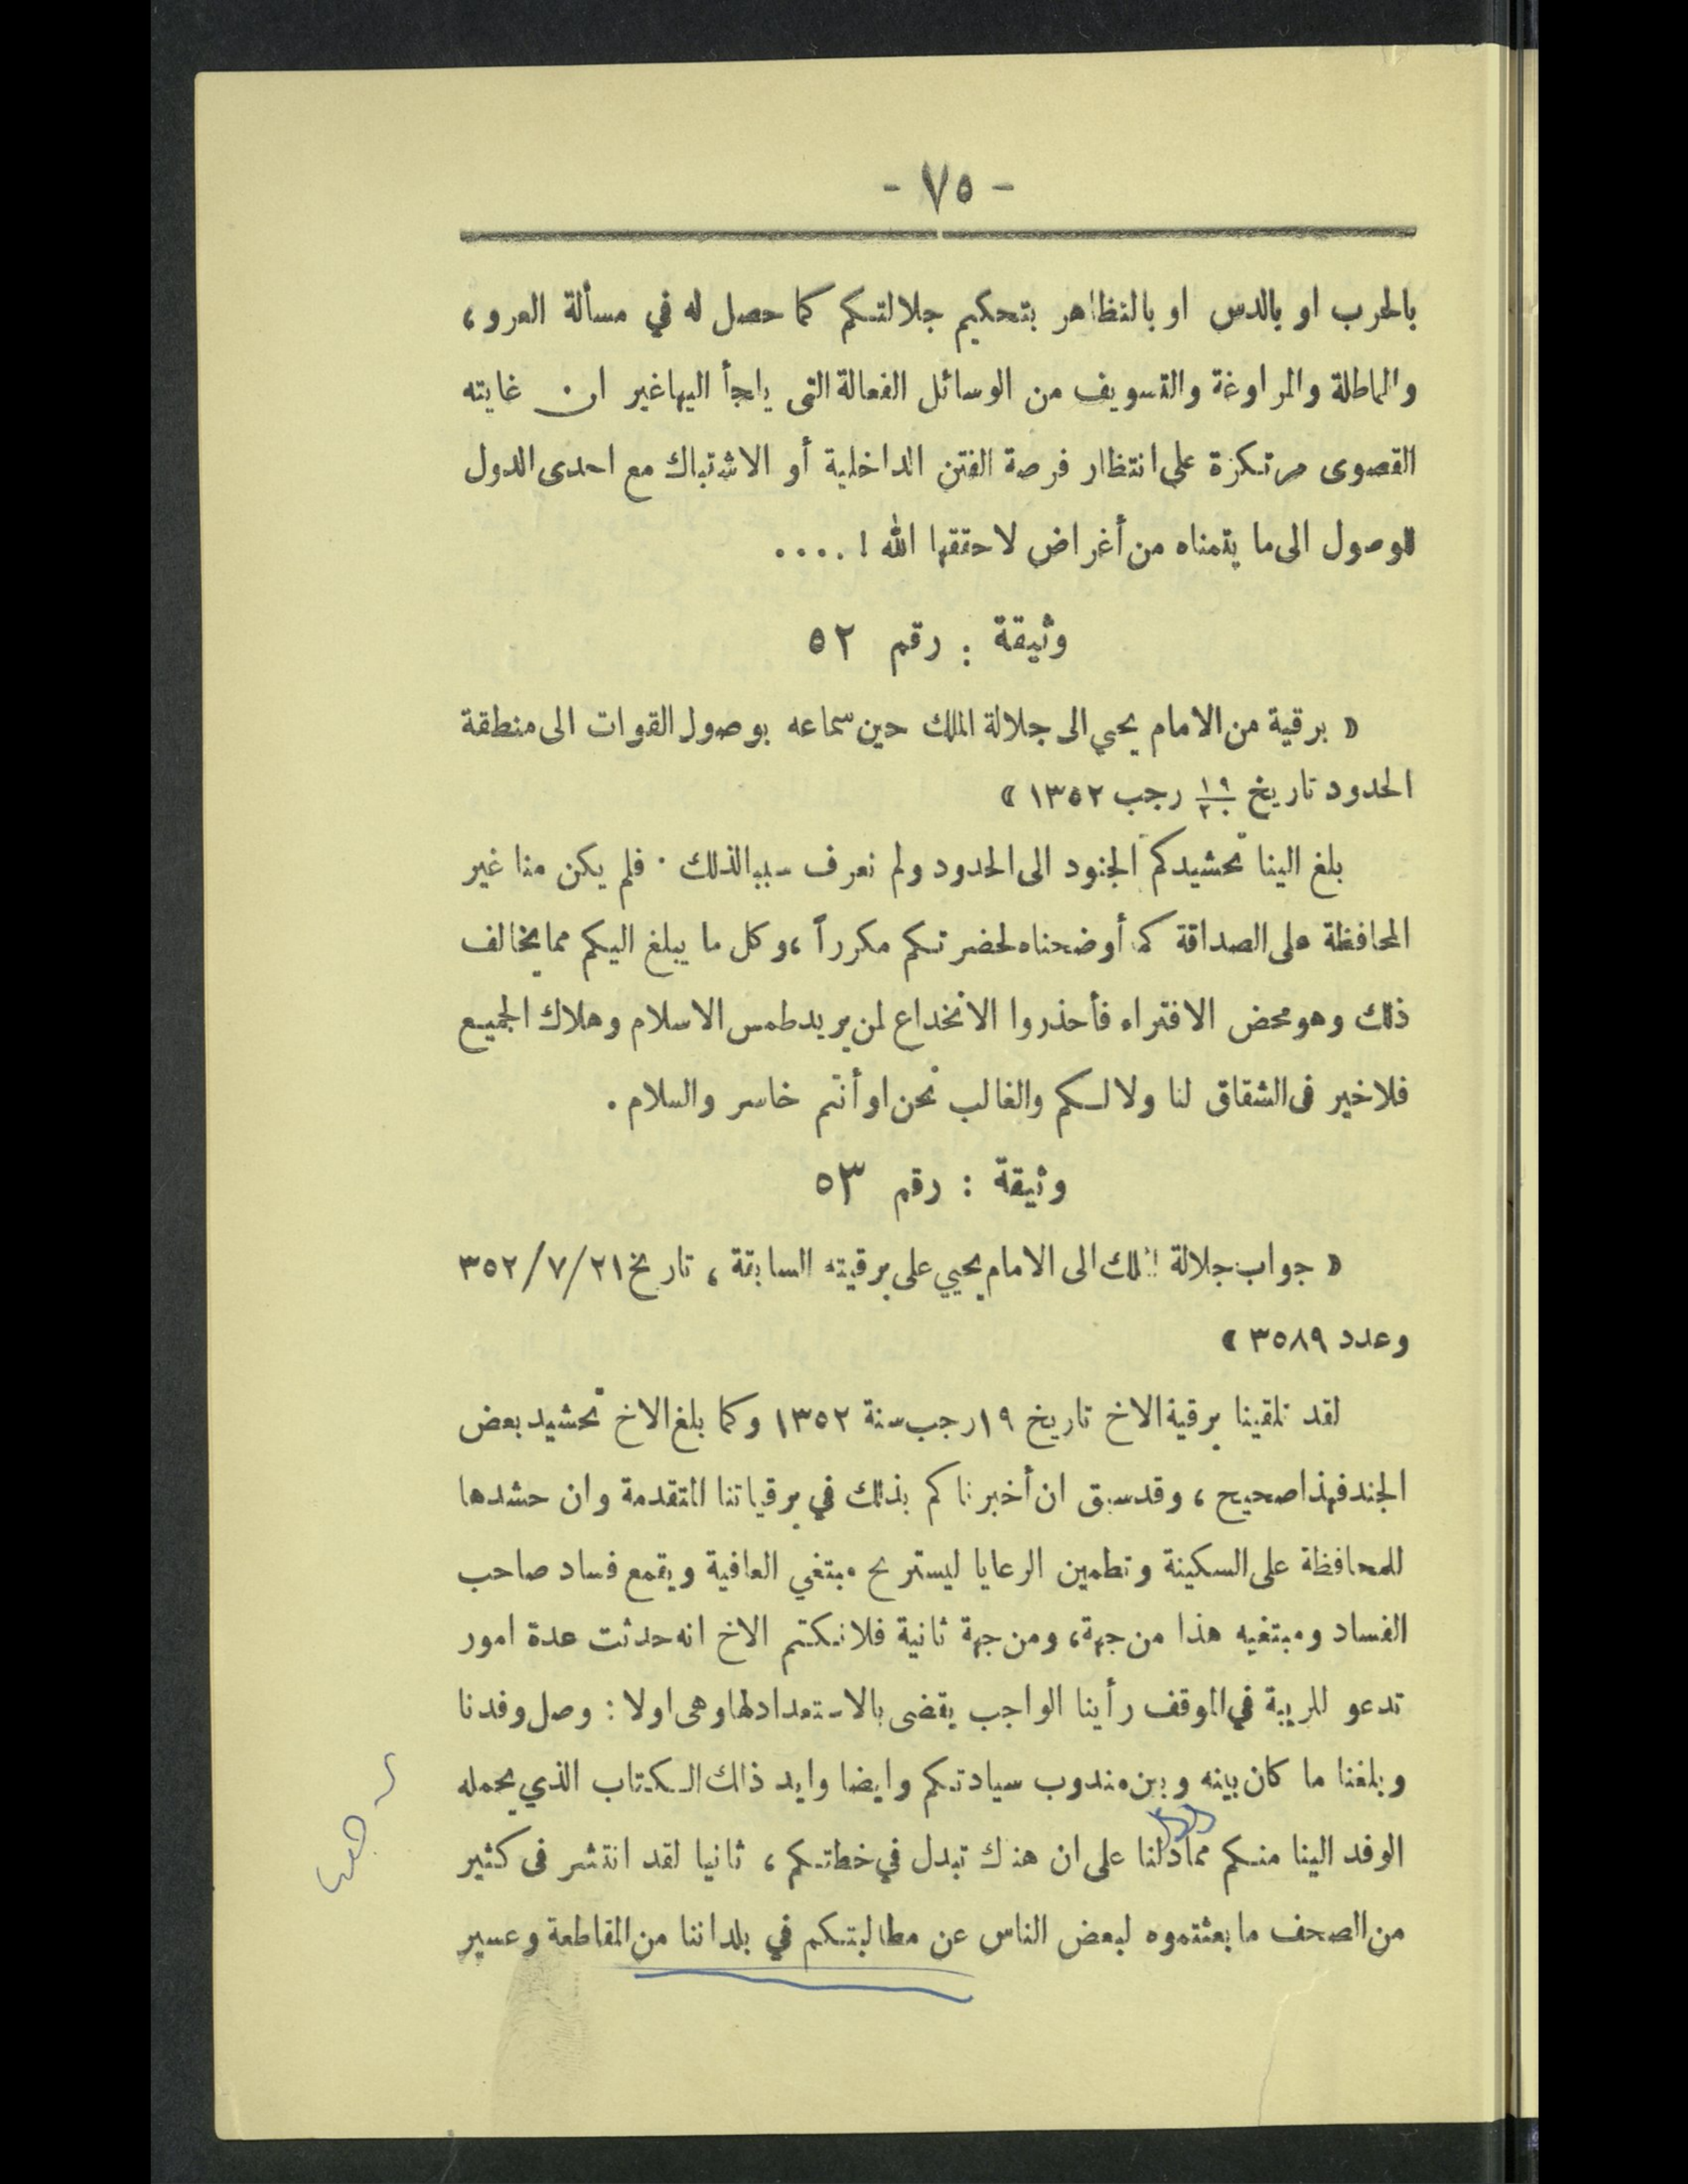 - ٧٥ -
بالحرب او بالدس او بالتظاهر بتحكيم جلالتكم كما حصل له في مسألة العرو ،
والماطلة والمراوغة والتسويف من الوسائل الفعالة التى يلجأ اليها غير ان غايته
القصوى مرتكزة على انتظار فرصة الفتن الداخلية أو الاشتباك مع احدى الدول
للوصول الى ما يتمناه من أغراض لا حققها الله ! ....
وثيقة : رقم ٥٢
« برقية من الامام يحيي الى جلالة الملك حين سماعه بوصول القوات الى منطقة
الحدود تاريخ ١٩/٢٠ رجب ١٣٥٢ »
بلغ الينا تحشيدكم الجنود الى الحدود ولم نعرف سببا لذلك . فلم يكن منا غير
المحافظة على الصداقة كما أوضحناه لحضرتكم مكرراً ، وكل ما يبلغ اليكم مما يخالف
ذلك وهو محض الافتراء فأحذروا الانخداع لمن يريد طمس الاسلام وهلاك الجميع
فلا خير فى الشقاق لنا ولا لكم والغالب نحن او أنتم خاسر والسلام .
وثيقة : رقم ٥٣
« جواب جلالة الملك الى الامام يحيي على برقيته السابقة ، تاريخ ٣٥٢/٧/٢١
وعدد ٣٥٨٩ »
لقد تلقينا برقية الاخ تاريخ ١٩ رجب سنة ١٣٥٢ وكما بلغ الاخ تحشيد بعض
الجند فهذا صحيح ، وقد سبق ان أخبرناكم بذلك في برقياتنا المتقدمة وان حشدها
للمحافظة على السكينة وتطمين الرعايا ليستريح مبتغي العافية ويقمع فساد صاحب
الفساد ومبتغيه هذا من جهة ، ومن جهة ثانية فلا نكتم الاخ انه حدثت عدة امور
تدعو للريبة في الموقف رأينا الواجب يقضى بالاستعداد لها وهى اولا : وصل وفدنا
وبلغنا ما كان بينه وبين مندوب سيادتكم وايضا وايد ذالك الكتاب الذي يحمله
الوفد الينا منكم مما دلنا على ان هناك تبدل في خطتكم ، ثانيا لقد انتشر فى كثير
من الصحف ما بعثتموه لبعض الناس عن مطالبتكم في بلداننا من المقاطعة وعسير